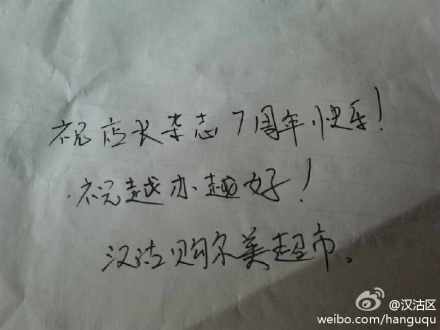 祝店长杂志7周年快乐!
祝越办越好!
汉沽购尔美超市。
@汉沽区
weibo.com/hanguqu